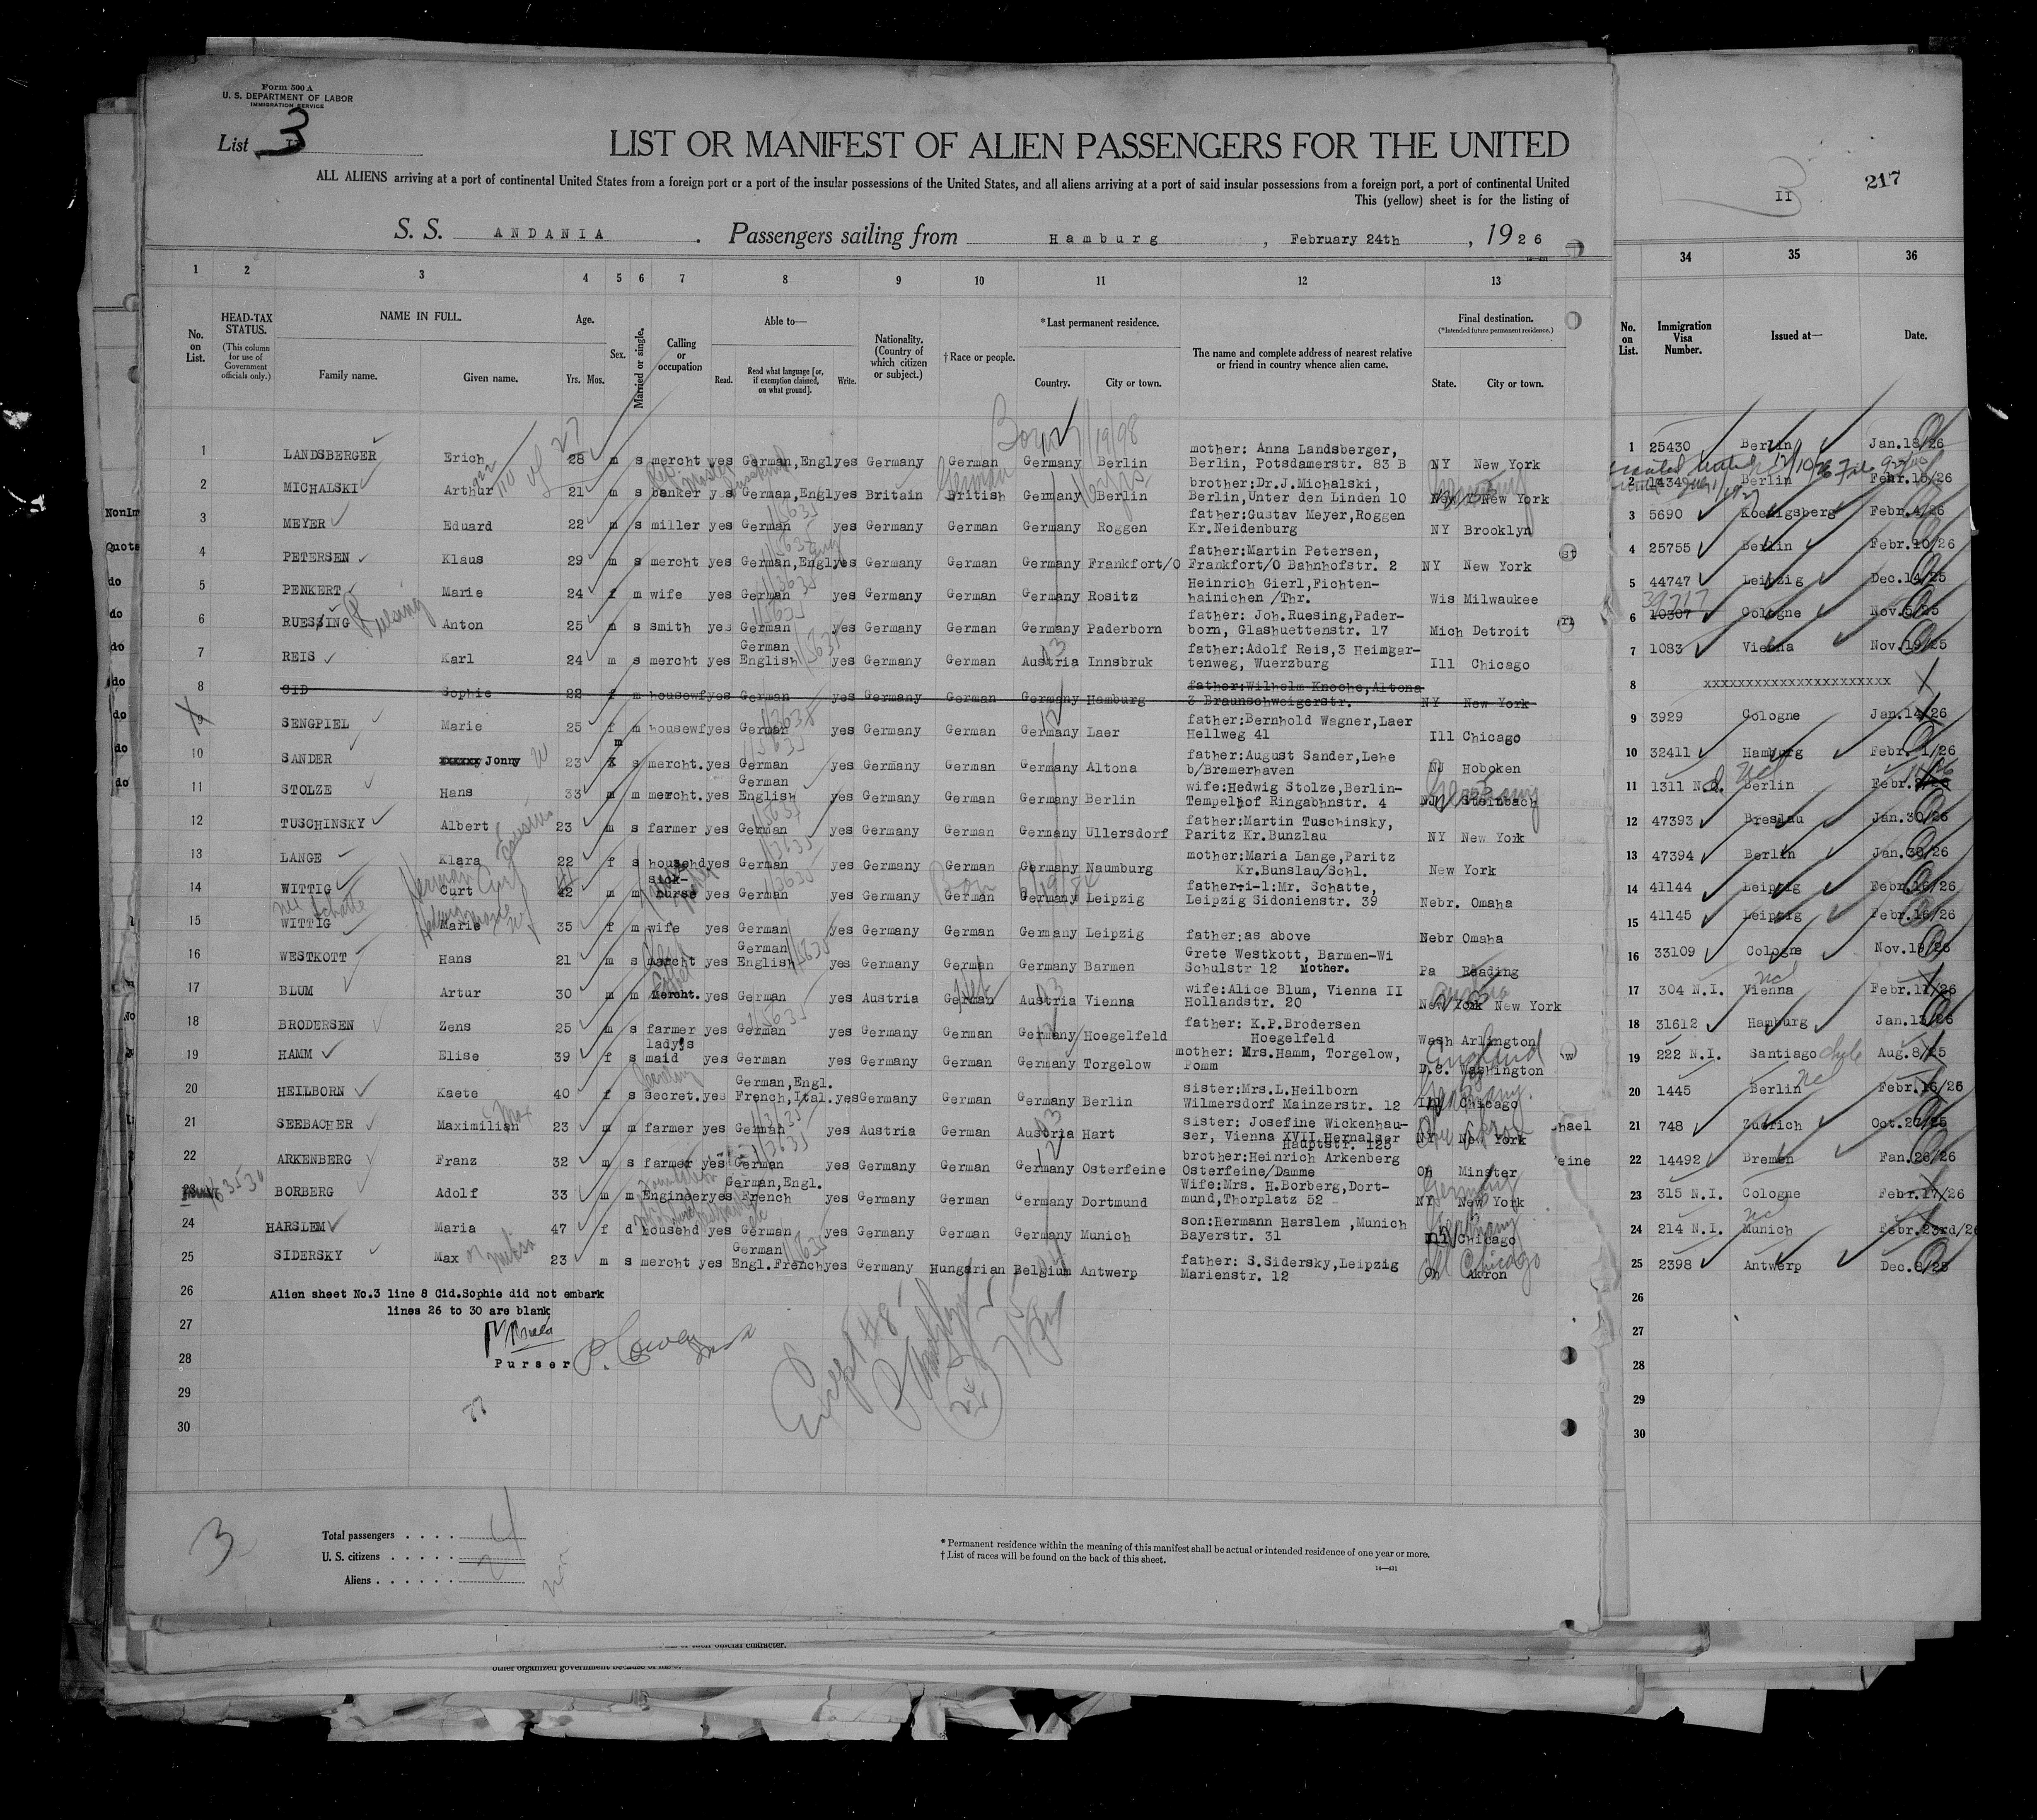 Form 500 A
U. S. DEPARTMENT OF LABOR
IMMIGRATION SERVICE
List 3
LIST OR MANIFEST OF ALIEN PASSENGERS FOR THE UNITED
ALL ALIENS arriving at a port of continental United States from a foreign port or a port of the insular possessions of the United States, and all aliens arriving at a port of said insular possessions from a foreign port, a port of continental United
This (yellow) sheet is for the listing of
S. S. ANDANIA . Passengers sailing from Hamburg , February 24th , 1926
II 217
1 2 3 4 5 6 7 8 9 10 11 12 13 34 35 36
No. on List.
HEAD-TAX STATUS. (This column for use of Government officials only.)
NAME IN FULL.
Family name. Given name.
Age. Yrs. Mos.
Sex.
Married or single.
Calling or occupation
Able to—
Read. Read what language [or, if exemption claimed, on what ground]. Write.
Nationality. (Country of which citizen or subject.)
† Race or people.
* Last permanent residence.
Country. City or town.
The name and complete address of nearest relative or friend in country whence alien came.
Final destination. (*Intended future permanent residence.)
State. City or town.
No. on List. Immigration Visa Number. Issued at— Date.
Born 19/98
1 LANDSBERGER Erich 28 m s mercht yes German,Engl yes Germany German Germany Berlin mother: Anna Landsberger, Berlin, Potsdamerstr. 83 B NY New York 1 25430 Berlin Jan.18/26
2 MICHALSKI Arthur 21 m s banker yes German,Engl yes Britain British Germany Berlin brother:Dr.J.Michalski, Berlin,Unter den Linden 10 New York 2 14349 Berlin Febr.10/26
NonIm
3 MEYER Eduard 22 m s miller yes German yes Germany German Germany Roggen father:Gustav Meyer,Roggen Kr.Neidenburg NY Brooklyn 3 5690 Koenigsberg Febr.4/26
Quota
4 PETERSEN Klaus 29 m s mercht yes German,Engl yes Germany German Germany Frankfort/O father:Martin Petersen, Frankfort/O Bahnhofstr. 2 NY New York 4 25755 Berlin Febr.10/26
do
5 PENKERT Marie 24 f m wife yes German yes Germany German Germany Rositz Heinrich Gierl,Fichten-hainichen /Thr. Wis Milwaukee 5 44747 Leipzig Dec.14/25
do
6 RUESSING Ruesing Anton 25 m s smith yes German yes Germany German Germany Paderborn father: Joh.Ruesing,Pader-born, Glashuettenstr. 17 Mich Detroit 6 10307 Cologne Nov.5/25
do
7 REIS Karl 24 m s mercht yes German English yes Germany German Austria Innsbruk father:Adolf Reis,3 Heimgar-tenweg, Wuerzburg Ill Chicago 7 1083 Vienna Nov.19/25
do
8 CID Sophie 22 f m housewf yes German yes Germany German Germany Hamburg father:Wilhelm Knoche,Altona 3 Braunschweigerstr. NY New York 8 xxxxxxxxxxxxxxxxxxxxxx
do
9 SENGPIEL Marie 25 f m housewf yes German yes Germany German Germany Laer father:Bernhold Wagner,Laer Hellweg 41 Ill Chicago 9 3929 Cologne Jan.14/26
do
10 SANDER Jonny 23 m s mercht. yes German yes Germany German Germany Altona father:August Sander,Lehe b/Bremerhaven NJ Hoboken 10 32411 Hamburg Febr. 1/26
do
11 STOLZE Hans 33 m m mercht. yes German English yes Germany German Germany Berlin wife:Hedwig Stolze,Berlin-Tempelhof Ringabhnstr. 4 NJ Steinbach Germany 11 1311 Berlin Febr.
12 TUSCHINSKY Albert 23 m s farmer yes German yes Germany German Germany Ullersdorf father:Martin Tuschinsky, Paritz Kr.Bunzlau NY New York 12 47393 Breslau Jan.30/26
13 LANGE Klara 22 f s househd yes German yes Germany German Germany Naumburg mother:Maria Lange,Paritz Kr.Bunslau/Schl. New York 13 47394 Berlin Jan.30/26
14 WITTIG Curt 42 m m sick-nurse yes German yes Germany German Germany Leipzig father-i-l:Mr. Schatte, Leipzig Sidonienstr. 39 Nebr. Omaha 14 41144 Leiptig Febr.16/26
nee Schatte
15 WITTIG Marie 35 f m wife yes German yes Germany German Germany Leipzig father:as above Nebr Omaha 15 41145 Leiptig Febr.16/26
16 WESTKOTT Hans 21 m s mercht yes German English yes Germany German Germany Barmen Grete Westkott, Barmen-Wi Schulstr 12 Mother. Pa Reading 16 33109 Cologne Nov.19/25
17 BLUM Artur 30 m m Mercht. yes German yes Austria German Austria Vienna wife:Alice Blum, Vienna II Hollandstr. 20 New York New York 17 304 N.I. Vienna Febr.17/26
18 BRODERSEN Zens 25 m s farmer yes German yes Germany German Germany Hoegelfeld father: K.P.Brodersen Hoegelfeld Wash Arlington 18 31612 Hamburg Jan.13/26
19 HAMM Elise 39 f s lady's maid yes German yes Germany German Germany Torgelow mother: Mrs.Hamm, Torgelow, Pomm D.C. Washington England 19 222 N.I. Santiago Chile Aug.8/25
20 HEILBORN Kaete 40 f s secret. yes German,Engl. French,Ital. yes Germany German Germany Berlin sister:Mrs.L.Heilborn Wilmersdorf Mainzerstr. 12 Ill Chicago Germany 20 1445 Berlin Febr.16/26
21 SEEBACHER Maximilian Max 23 m m farmer yes German yes Austria German Austria Hart sister: Josefine Wickenhau-ser, Vienna XVII,Hernalser Hauptstr. 125 NY New York 21 748 Zurich Oct.27/25
22 ARKENBERG Franz 32 m s farmer yes German yes Germany German Germany Osterfeine brother:Heinrich Arkenberg Osterfeine/Damme Oh Minster 22 14492 Bremen Fan.26/26
23 BORBERG Adolf 33 m m Engineer yes German,Engl. French yes Germany German Germany Dortmund Wife:Mrs. H.Borberg,Dort-mund,Thorplatz 52 NY New York Germany 23 315 N.I. Cologne Febr.17/26
24 HARSLEM Maria 47 f d househd yes German yes Germany German Germany Munich son:Hermann Harslem ,Munich Bayerstr. 31 Ill Chicago Germany 24 214 N.I. Munich Febr.23rd/26
25 SIDERSKY Max 23 m s mercht yes German Engl.French yes Germany Hungarian Belgium Antwerp father: S.Sidersky,Leipzig Marienstr. 12 Oh Akron Ill Chicago 25 2398 Antwerp Dec.8/25
26 Alien sheet No.3 line 8 Cid.Sophie did not embark 26
lines 26 to 30 are blank
27 27
Purser
28 28
29 29
30 30
Except #8
3
Total passengers . . . . 24
U. S. citizens . . . . .
Aliens . . . . . . .
* Permanent residence within the meaning of this manifest shall be actual or intended residence of one year or more.
† List of races will be found on the back of this sheet.
14—431
other organized government because of